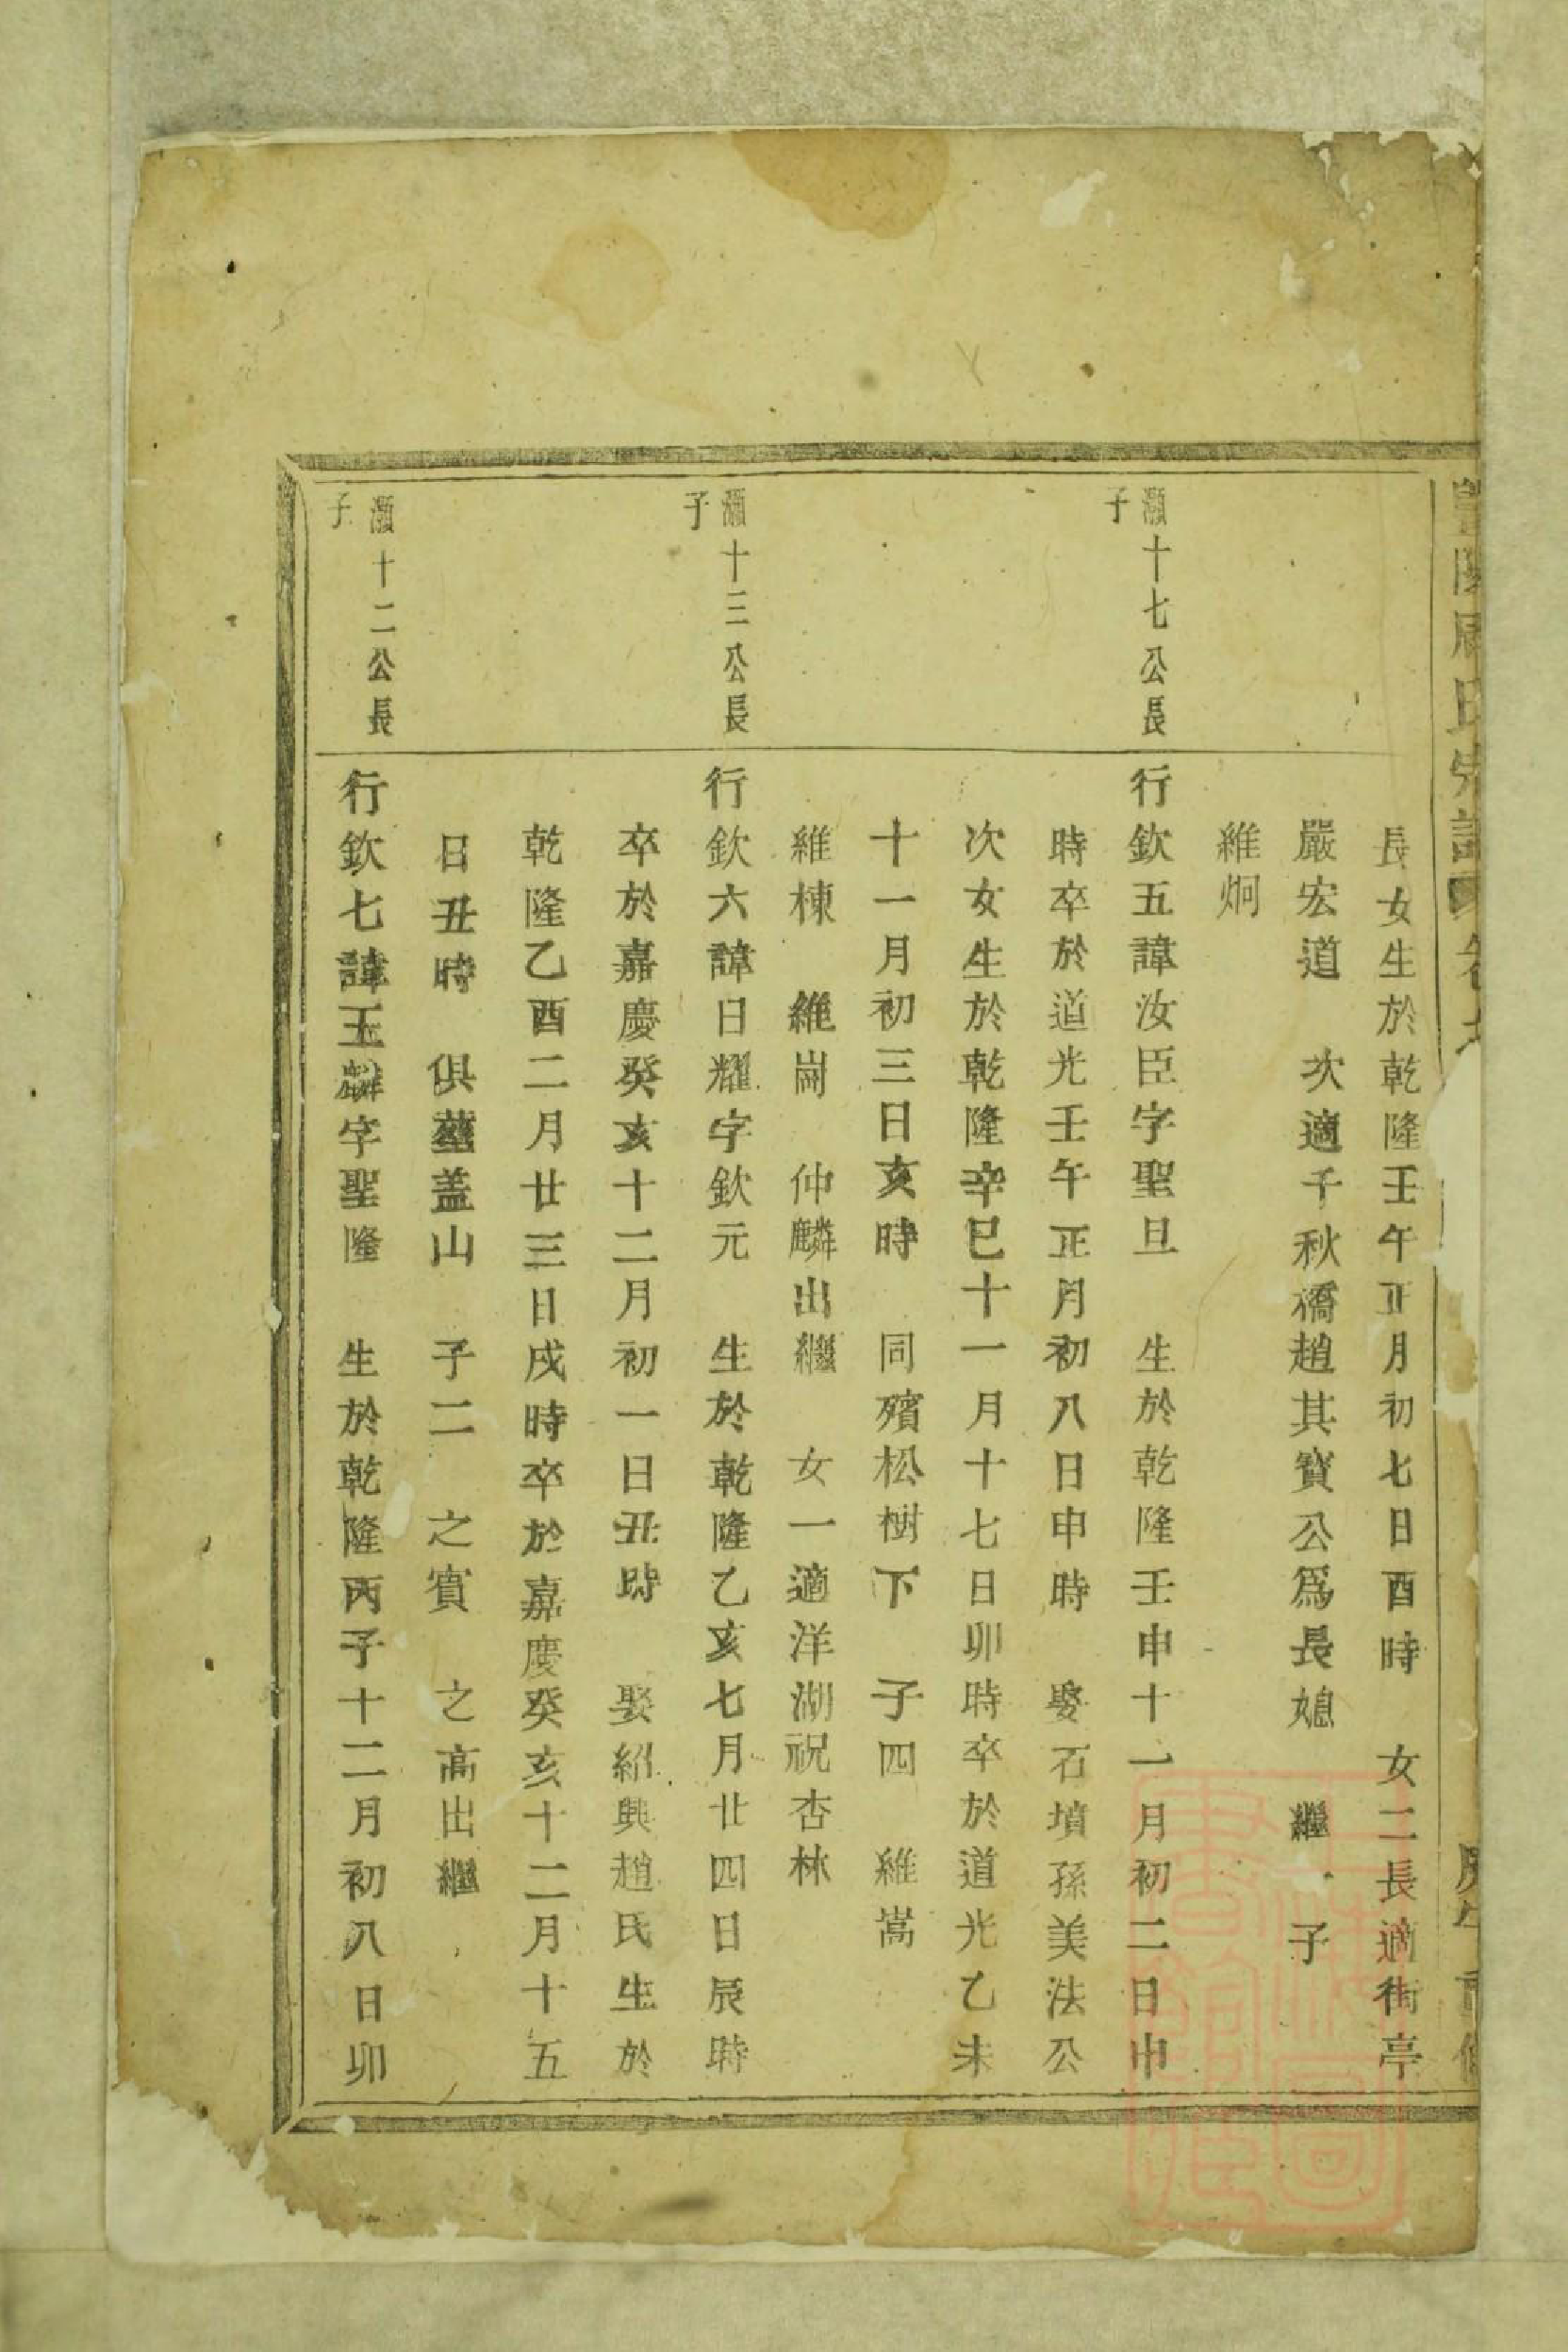 周氏宗譜
長女生於乾隆壬午正月初七日酉時　女二長適街亭
嚴宏道　次適千秋橋趙其寶公爲長媳　繼　子
維炯
灝十七公長
子
行欽五諱汝臣字聖旦　生於乾隆壬申十一月初二日申
時卒於道光壬午正月初八日申時　娶石墳孫美法公
次女生於乾隆辛巳十一月十七日卯時卒於道光乙未
十一月初三日亥時　同殯松樹下　子四　維嵩
維棟　維崗　仲麟出繼　女一適洋湖祝杏林
灝十三公長
子
行欽六諱日耀字欽元　生於乾隆乙亥七月廿四日辰時
卒於嘉慶癸亥十二月初一日丑時　娶紹興趙氏生於
乾隆乙酉二月廿三日戌時卒於嘉慶癸亥十二月十五
日丑時　俱葬蓋山　子二　之賓　之高出繼
灝十二公長
子
行欽七諱玉麟字聖隆　生於乾隆丙子十二月初八日卯